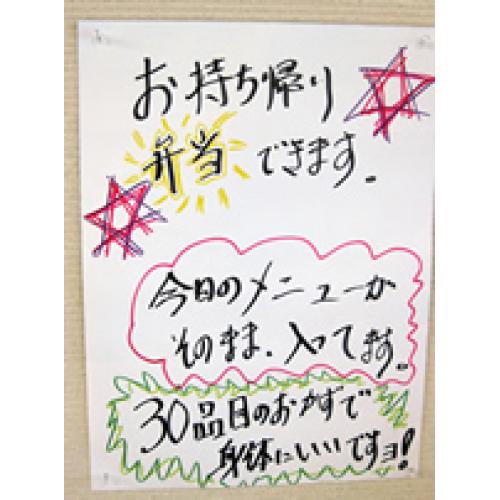 お持ち帰り
弁当できます。
今日のメニューが
そのまま、入ってます。
30品目のおかずで
身体にいいですョ!